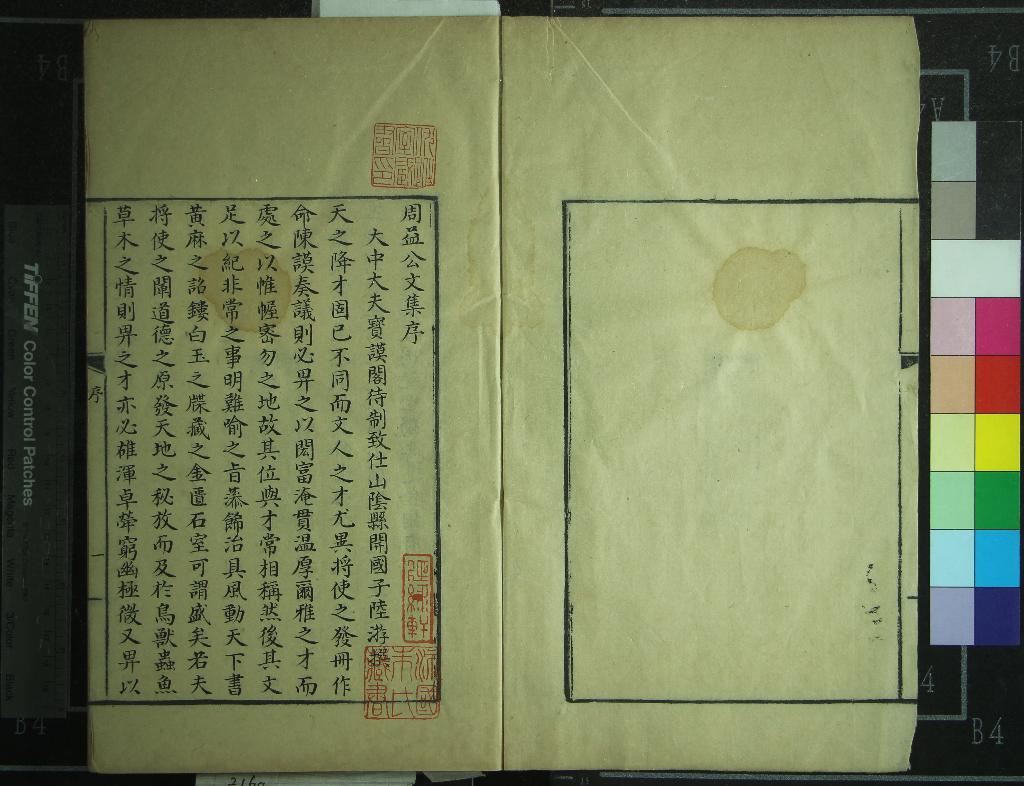 周益公文集序
大中大夫寶謨閣待制致仕山陰縣開國子陸游撰
天之降才固已不同而文人之才尤異將使之發冊作
命陳謨奏議則必畀之以閎富淹貫温厚爾雅之才而
處之以惟幄宻勿之地故其位與才常相稱然後其文
足以紀非常之事明難喻之旨黍飾治具風動天下書
黃麻之詔鏤白玉之牒藏之金匱石室可謂盛矣若夫
將使之闡道德之原發天地之秘放而及於鳥獸蟲魚
草木之情則畀之才亦必雄渾卓犖窮幽極微又畀以
序
一
TIFFEN Color Control Patches
B4
B4
B4
B4
A4